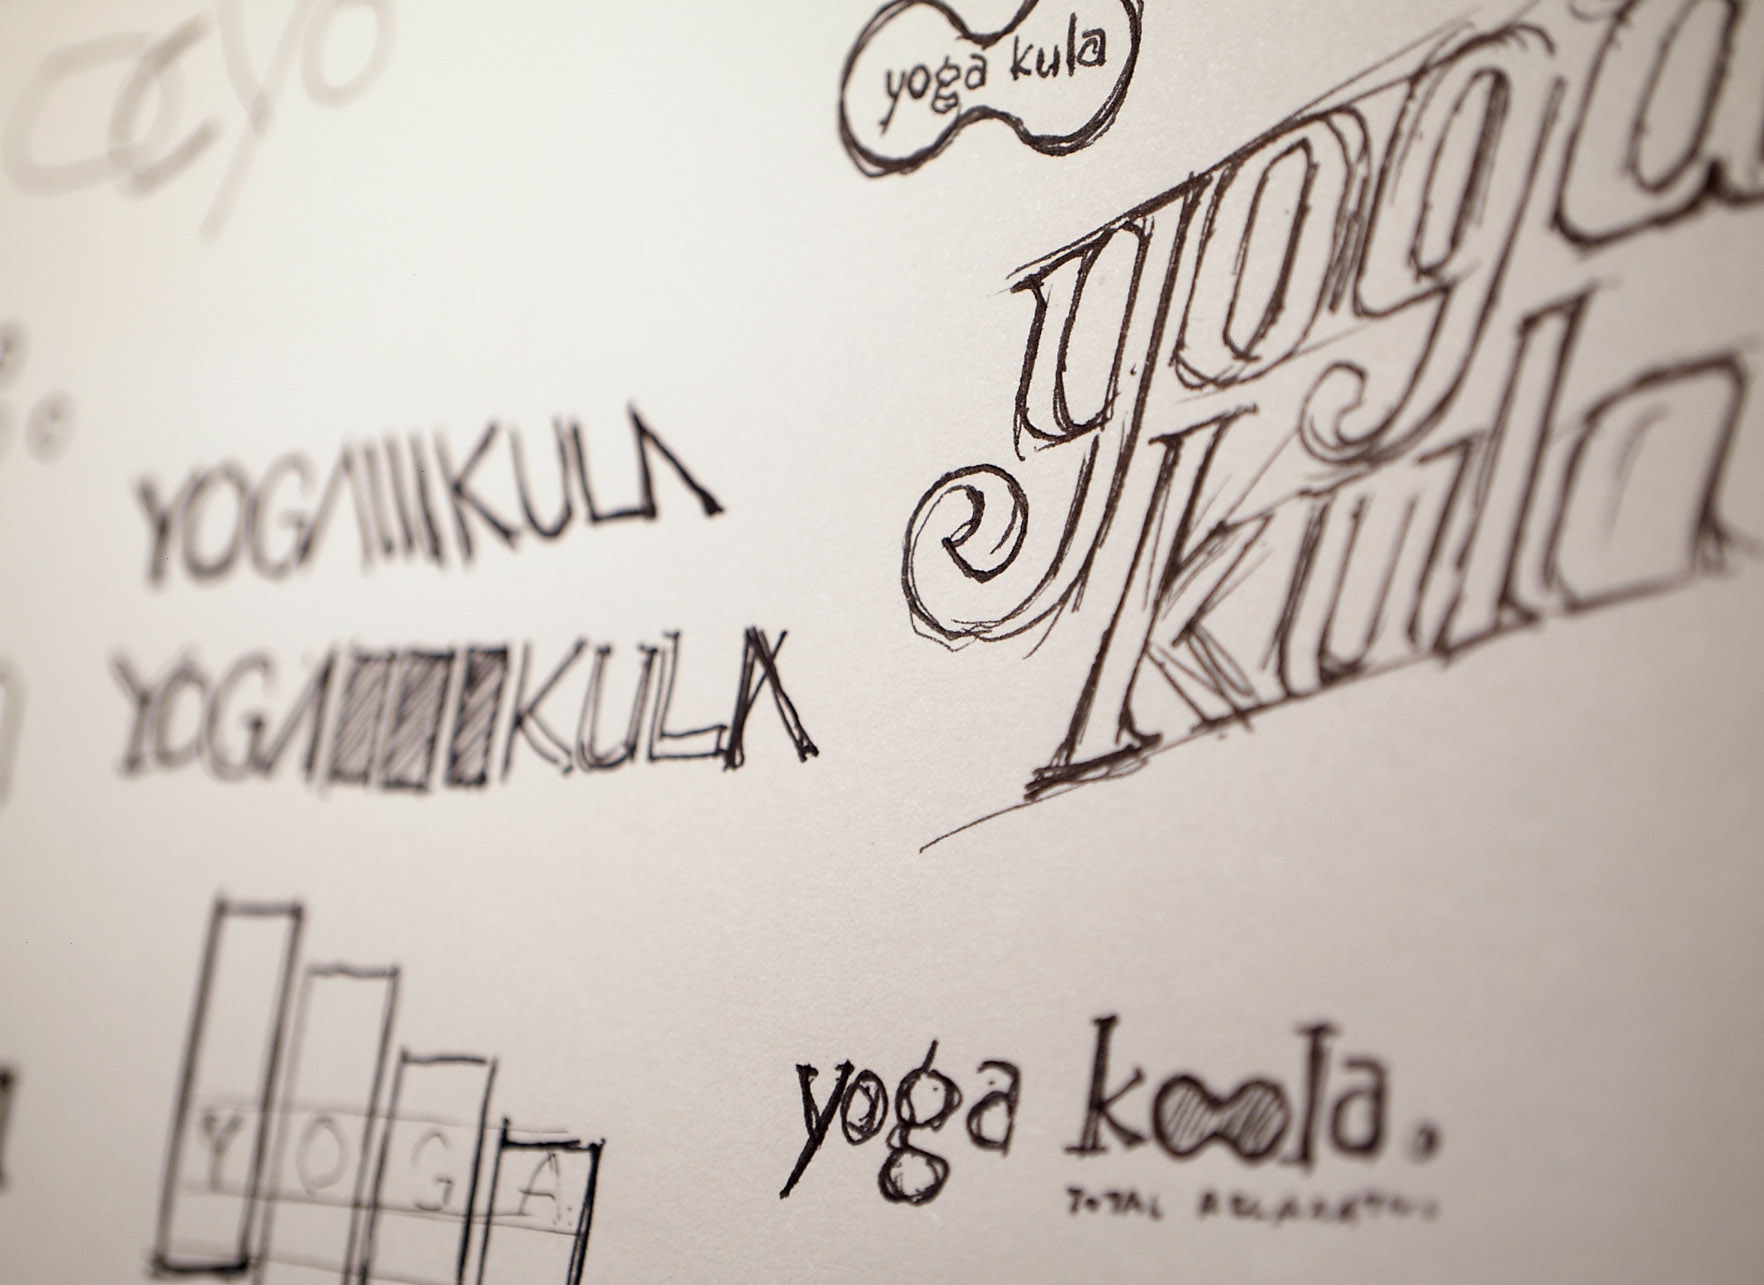 yoga kula
yoga
kula
YOGA KULA
YOGA KULA
YOGA
yoga koola.
TOTAL RELAXATION